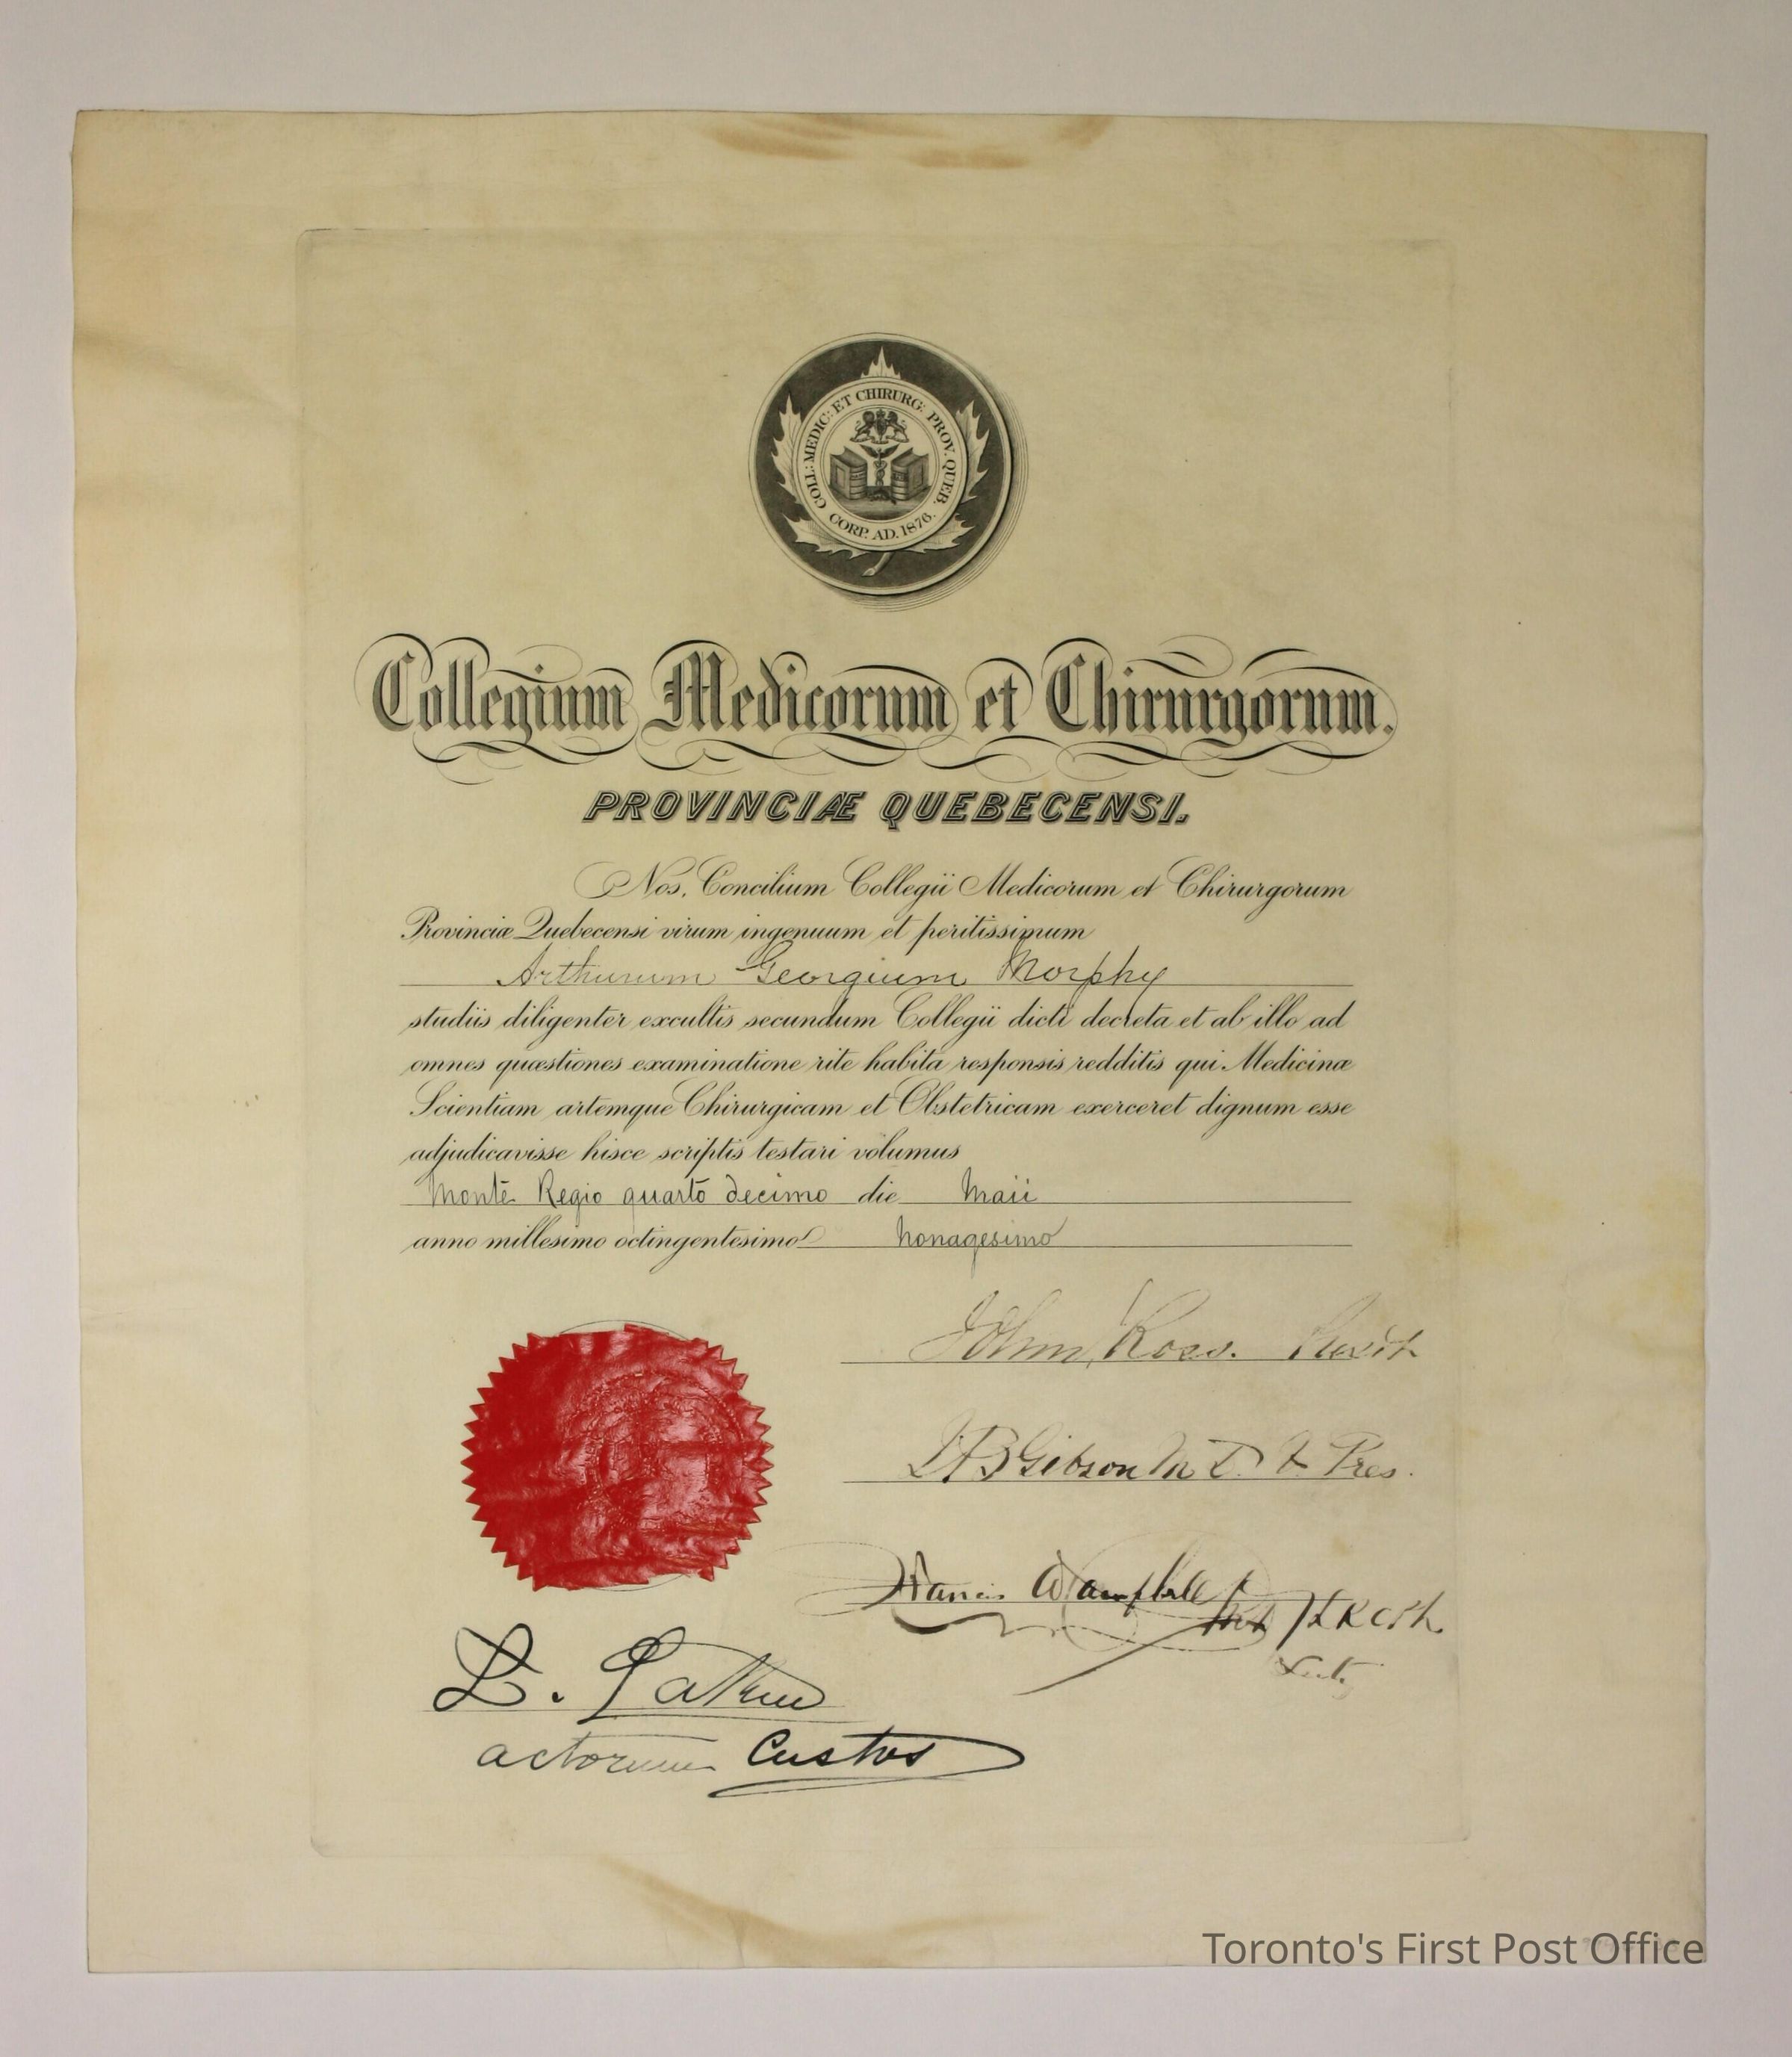 COLL: MEDIC: ET CHIRURG: PROV. QUEB.
CORP. AD. 1876.
Collegium Medicorum et Chirurgorum.
PROVINCIÆ QUEBECENSI.
Nos, Concilium Collegii Medicorum et Chirurgorum
Provinciæ Quebecensi virum ingenuum et peritissimum
Arthurum Georgium Morphy
studiis diligenter excultis secundum Collegii dicti decreta et ab illo ad
omnes quæstiones examinatione rite habita responsis redditis qui Medicinæ
Scientiam artemque Chirurgicam et Obstetricam exerceret dignum esse
adjudicavisse hisce scriptis testari volumus
Monte Regio quarto decimo die Maii
anno millesimo octingentesimo nonagesimo
John Ross.
Gibson M D Pres.
Francis W Campbell
L.
actorum Custos
Toronto's First Post Office